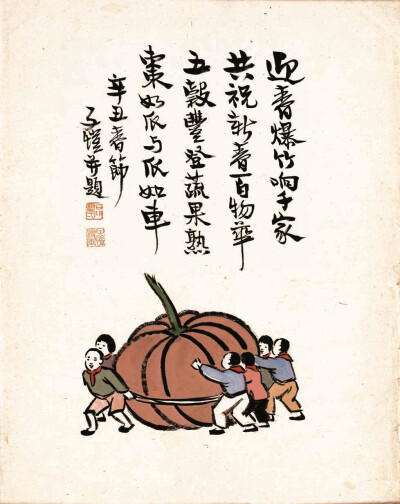 迎春爆竹响千家
共祝新春百物华
五穀豐登蔬果熟
棗如瓜与瓜如車
辛丑春節
子愷并題